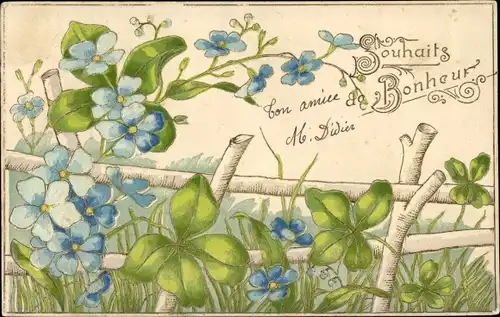 Souhaits
de
Bonheur
Ton amie
M. Didier